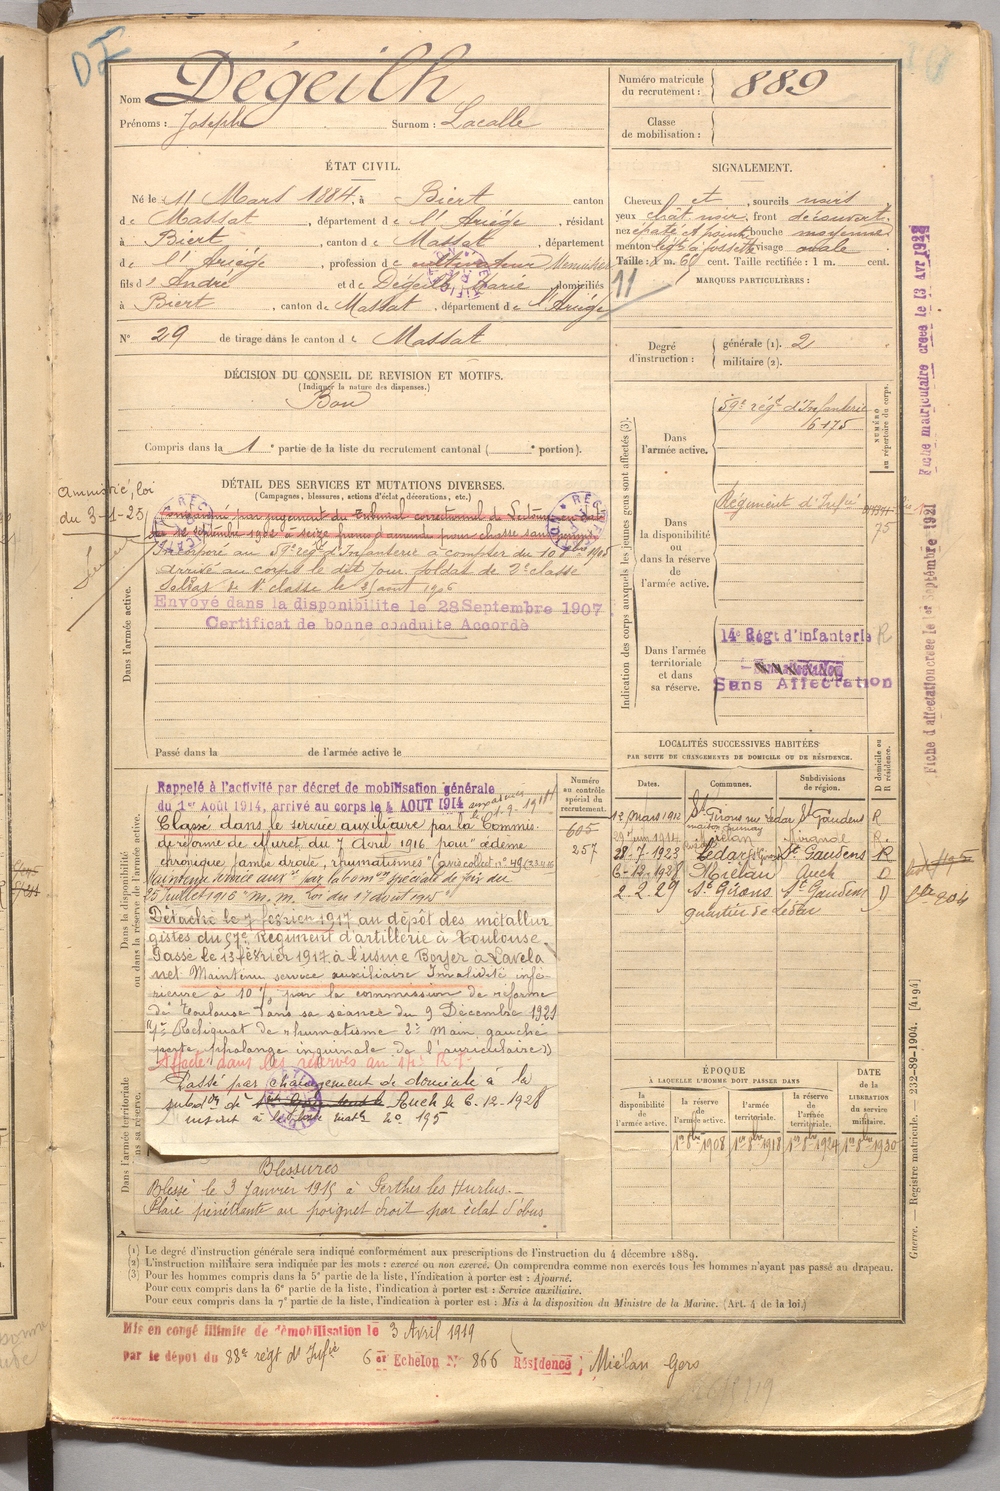 DI
Nom Dégeilh
Prénoms : Joseph Surnom : Lacalle
Numéro matricule du recrutement : 889
Classe de mobilisation :
ÉTAT CIVIL.
Né le 11 Mars 1884, à Biert canton
de Massat, département de l'Ariége, résidant
à Biert, canton de Massat, département
de l'Ariége, profession de cultivateur Menuisier
fils d'André et de Dégeilh Marie, domiciliés
à Biert, canton de Massat, département de l'Ariége
N° 29 de tirage dans le canton de Massat
SIGNALEMENT.
Cheveux et, sourcils noirs
yeux chât. noir, front découvert
nez épaté et pointu bouche moyenne
menton lég. à fossette visage ovale
Taille : 1 m. 61 cent. Taille rectifiée : 1 m. cent.
MARQUES PARTICULIÈRES :
11
Degré d'instruction : générale (1). 2
militaire (2).
DÉCISION DU CONSEIL DE REVISION ET MOTIFS.
(Indiquer la nature des dispenses.)
Bon
Compris dans la 1e partie de la liste du recrutement cantonal ( e portion).
DÉTAIL DES SERVICES ET MUTATIONS DIVERSES.
(Campagnes, blessures, actions d'éclat, décorations, etc.)
Amnistié, loi
du 3-1-25
Condamné par jugement du Tribunal correctionnel de
du 12 septembre 1902 à seize francs amende pour chasse sans permis
Incorporé au 59e régt d'Infanterie à compter du 10 8bre 1905
Arrivé au corps le dit jour, soldat de 2e classe
Soldat de 1e classe le août 1906
Envoyé dans la disponibilite le 28 Septembre 1907
Certificat de bonne conduite Accordé
Dans l'armée active.
Passé dans la de l'armée active le
Indication des corps auxquels les jeunes gens sont affectés (3).
Dans l'armée active.
59e régt d'Infanterie
6175
NUMÉRO au répertoire du corps.
Dans la disponibilité ou dans la réserve de l'armée active.
Régiment d'Infie
75
Dans l'armée territoriale et dans sa réserve.
14e Régt d'infanterie R
Sans Affectation
Fiche matriculaire créée le 13 Avr 1928
Fiche d'affectation créée le 1er Septembre 1921
Dans la disponibilité ou dans la réserve de l'armée active.
Rappelé à l'activité par décret de mobilisation générale
du 1er Août 1914, arrivé au corps le 4 AOUT 1914
Classé dans le service auxiliaire par la Commis.
de réforme de Muret, du 7 Avril 1916 pour "œdème
chronique jambe droite, rhumatismes"
Maintenu service auxre par la comon spéciale de Foix du
25 juillet 1916 "m. m." loi du 17 août 1915
Détaché le 7 février 1917 au dépôt des métallur
gistes du 57e Régiment d'artillerie à Toulouse.
Passé le 13 février 1917 à l'usine Boyer à Lavela
net. Maintenu service auxiliaire Invalidité infé-
rieure à 10 % par la commission de réforme
de Toulouse dans sa séance du 9 Décembre 1921
"1° Reliquat de rhumatisme 2° Main gauche
perte phalange inguinale de l'auriculaire"
Affecté dans les réserves au
Passé par changement de domicile à la
subdon de Auch le 6-12-1928
inscrit à matle n° 195
Numéro au contrôle spécial du recrutement.
605
257
Dans l'armée territoriale et dans sa réserve.
Blessures
Blessé le 3 Janvier 1915 à Perthes les Hurlus.
Plaie pénétrante au poignet droit par éclat d'obus
LOCALITÉS SUCCESSIVES HABITÉES
PAR SUITE DE CHANGEMENTS DE DOMICILE OU DE RÉSIDENCE.
Dates. Communes. Subdivisions de région. D domicile ou R résidence.
12 mars 1912 St Girons rue Ledar St Gaudens R
29 juin 1914 Miélan Mirande R
28-7-1923 Ledar St Gaudens R
6-12-1928 Miélan Auch D
2.2.29 St Girons St Gaudens D
quartier de Ledar
ÉPOQUE
À LAQUELLE L'HOMME DOIT PASSER DANS
la disponibilité de l'armée active.
la réserve de l'armée active.
l'armée territoriale.
la réserve de l'armée territoriale.
DATE de la LIBERATION du service militaire.
1er 8bre 1908 1er 8bre 1918 1er 8bre 1924 1er 8bre 1930
Guerre. — Registre matricule — 232-89-1904. [4194]
(1) Le degré d'instruction générale sera indiqué conformément aux prescriptions de l'instruction du 4 décembre 1889.
(2) L'instruction militaire sera indiquée par les mots : exercé ou non exercé. On comprendra comme non exercés tous les hommes n'ayant pas passé au drapeau.
(3) Pour les hommes compris dans la 5e partie de la liste, l'indication à porter est : Ajourné.
Pour ceux compris dans la 6e partie de la liste, l'indication à porter est : Service auxiliaire.
Pour ceux compris dans la 7e partie de la liste, l'indication à porter est : Mis à la disposition du Ministre de la Marine. (Art. 4 de la loi.)
Mis en congé illimité de démobilisation le 3 Avril 1919
par le dépôt du 88e régt d'Infie 6er Echelon N° 866 Résidence ; Miélan Gers